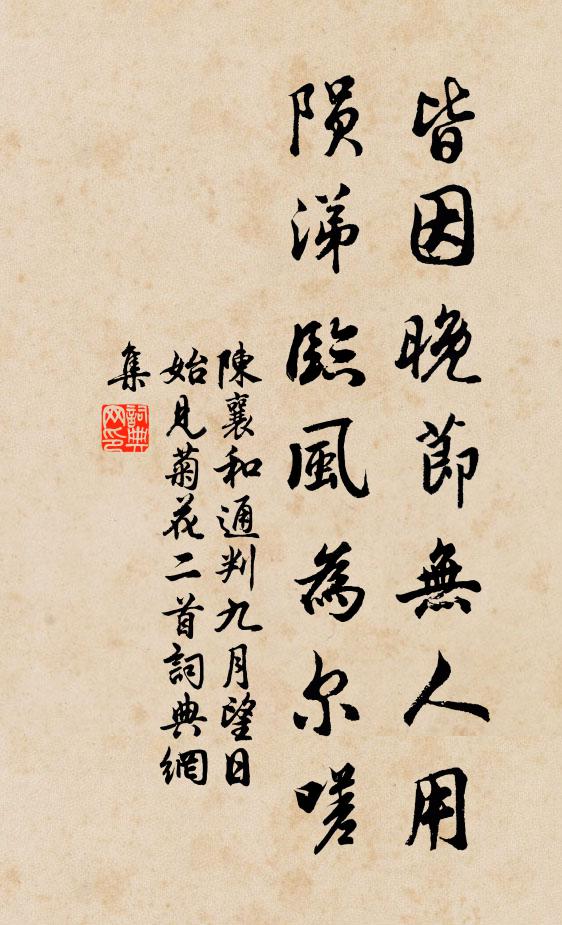 皆因晚節無人用
陨涕臨風為尔嗟
陳襄和通判九月望日
始見菊花二首詞典網
集
詞典
网印